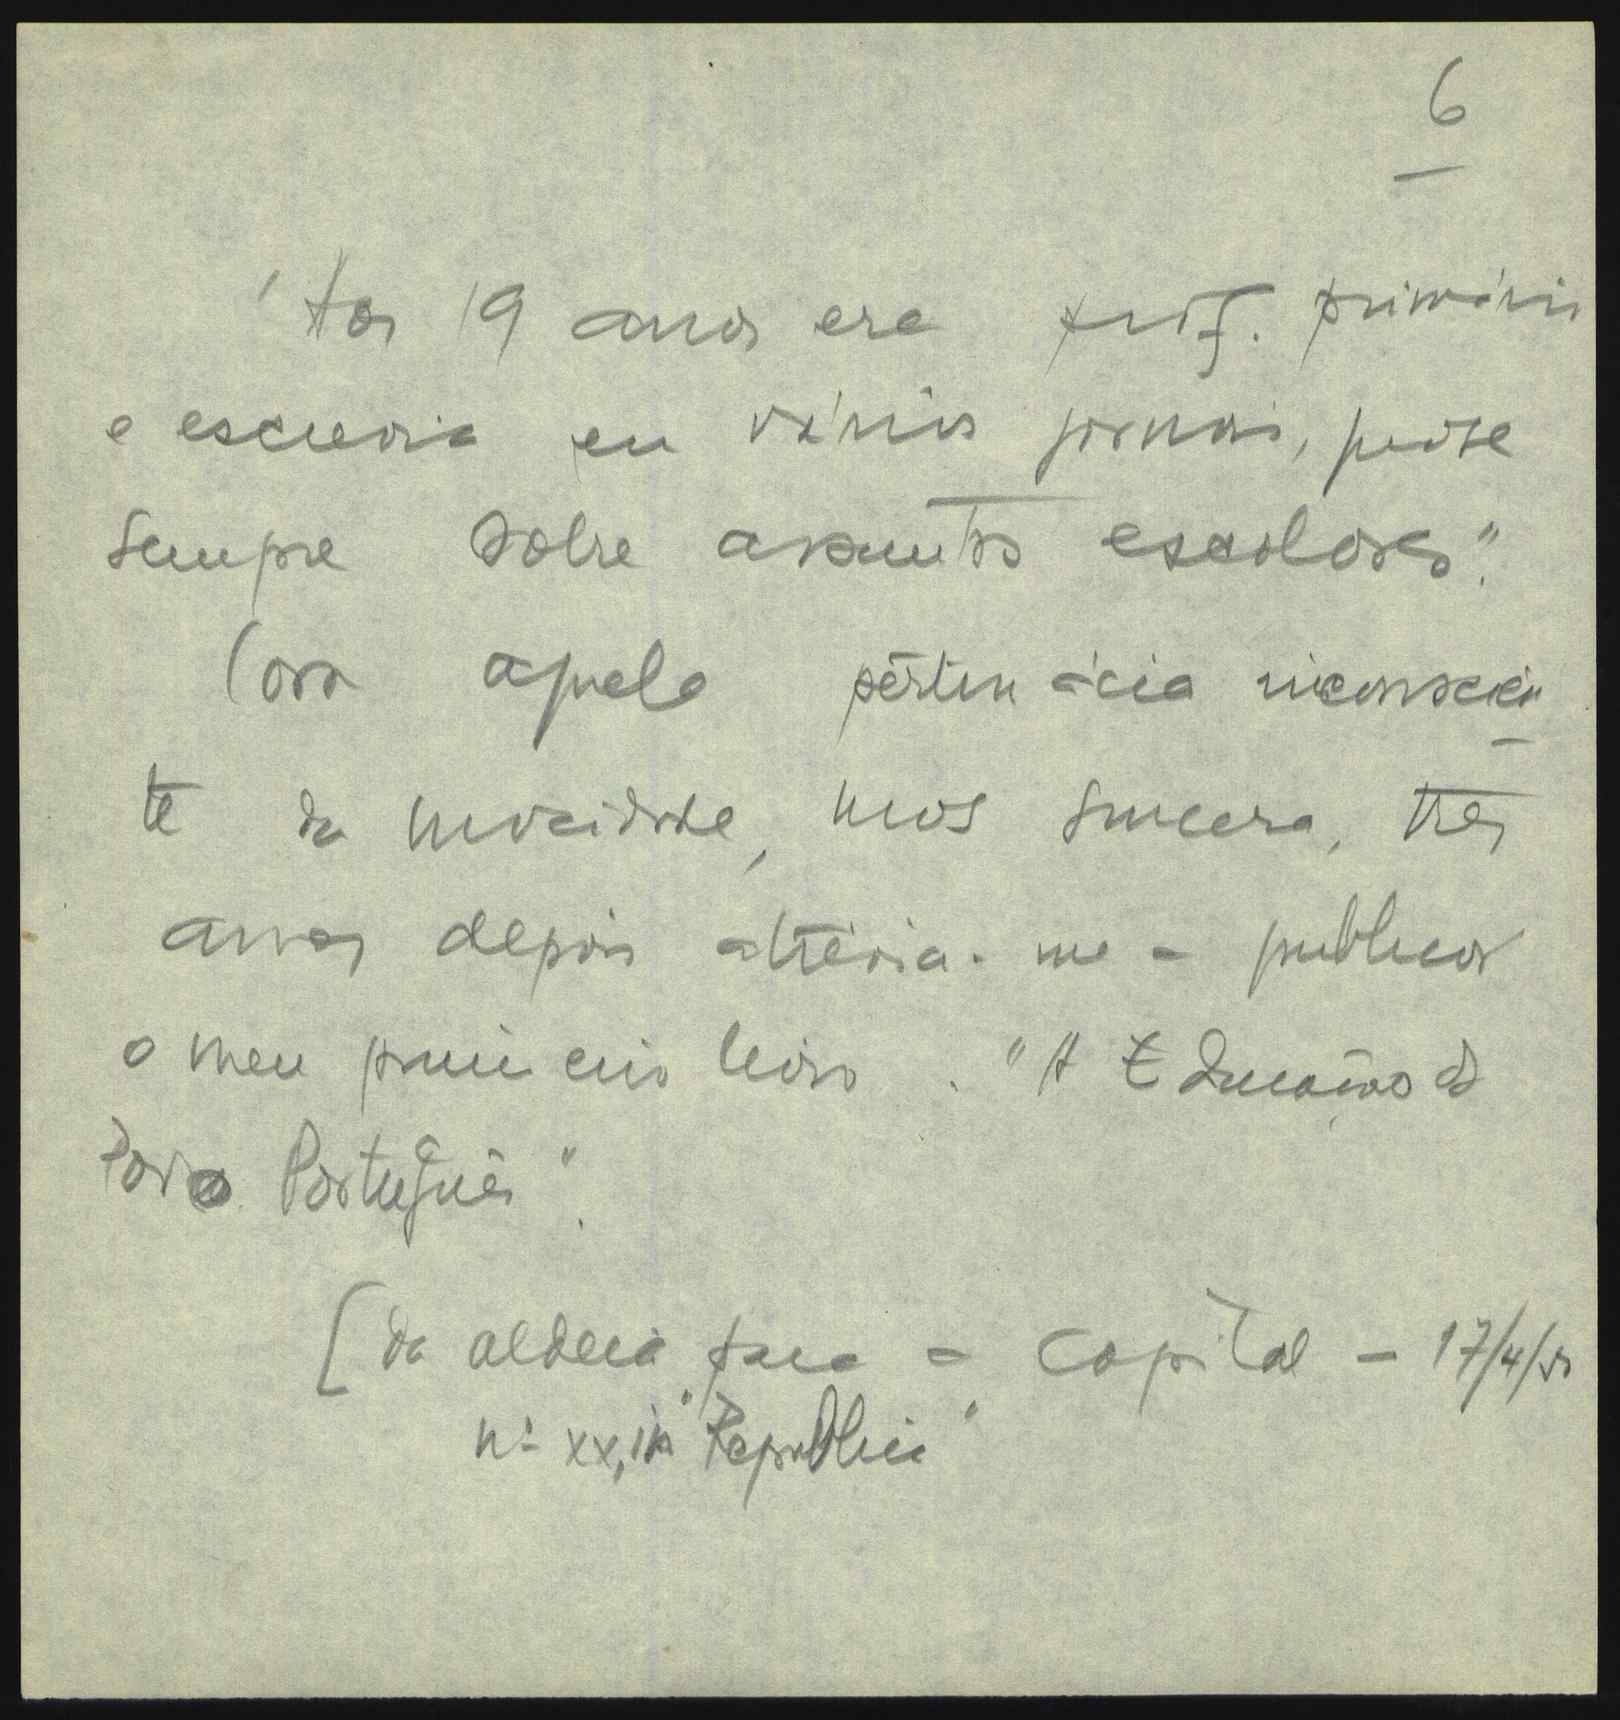 6
"Aos 19 anos era prof. primário
e escrevia em vários jornais, quase
sempre sobre assuntos escolares".
Com aquela pertinácia inconscien
te da mocidade, mas sincera, três
anos depois atrevia-me a publicar
o meu primeiro livro. "A Educação do
Povo Português".
[Da aldeia para a capital - 17/4/
nº xx, in "República"